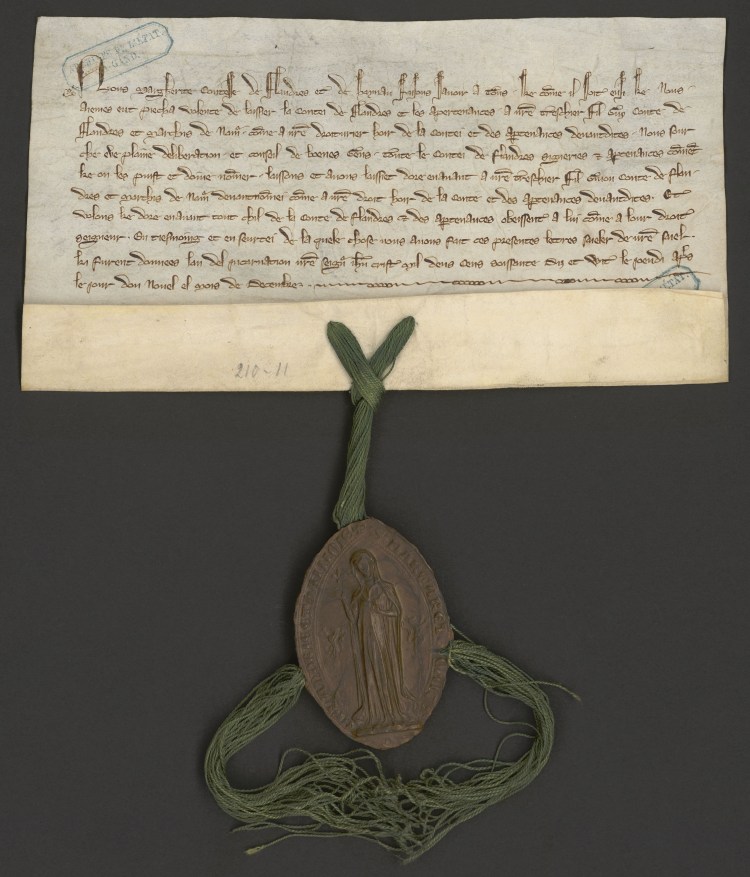 ARCHIVES DE L'ÉTAT
GAND
Nous Margherite Contesse de Flandres et de Haynau faisons savoir a tous ke come il soit ensi ke nous
aiemes eut piecha volente de laissier la Contei de Flandres et les apertenances a nr̄e treschier fil Guiō Conte de
Flandres et Marchis de Namʳ come a nr̄e droiturier hoir de la Contei et des aptenances devantdites · Nous seur
che ... plaine deliberation et conseil de boenes gens toute le Contei de Flandres signeries et aptenances coment
ke on les puist et doive nōmer · laissons et avons laissiet dore enavant a nr̄e treschier fil Guion Conte de Flan
dres et Marchis de Namʳ devantnōmei cōme a nr̄e droit hoir de la Conte et des aptenances devantdites · Et
volons ke dore enavant tout chil de la Conte de Flandres et des aptenances obeissent a lui cōme a lour droit
seigneur · En tesmoing et en seurtei de la quele chose nous avons fait ces presentes letres saeler de nr̄e saiel ·
ki furent donnees lan del incarnation nr̄e seigñ ihū crist mil deus cens soissante dis et wit le joesdi apˢ
le jour dou Nouel el mois de Decembre ·
210-11